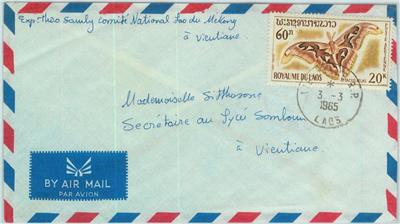 Exp: Théo Samly Comité National Lao du Mékong
à Vientiane
60 ກີບ
ROYAUME DU LAOS
20k
3 - 3
1965
LAOS
Mademoiselle Sitthosone
Secrétaire au Lycée Somboun
à Vientiane
BY AIR MAIL
PAR AVION